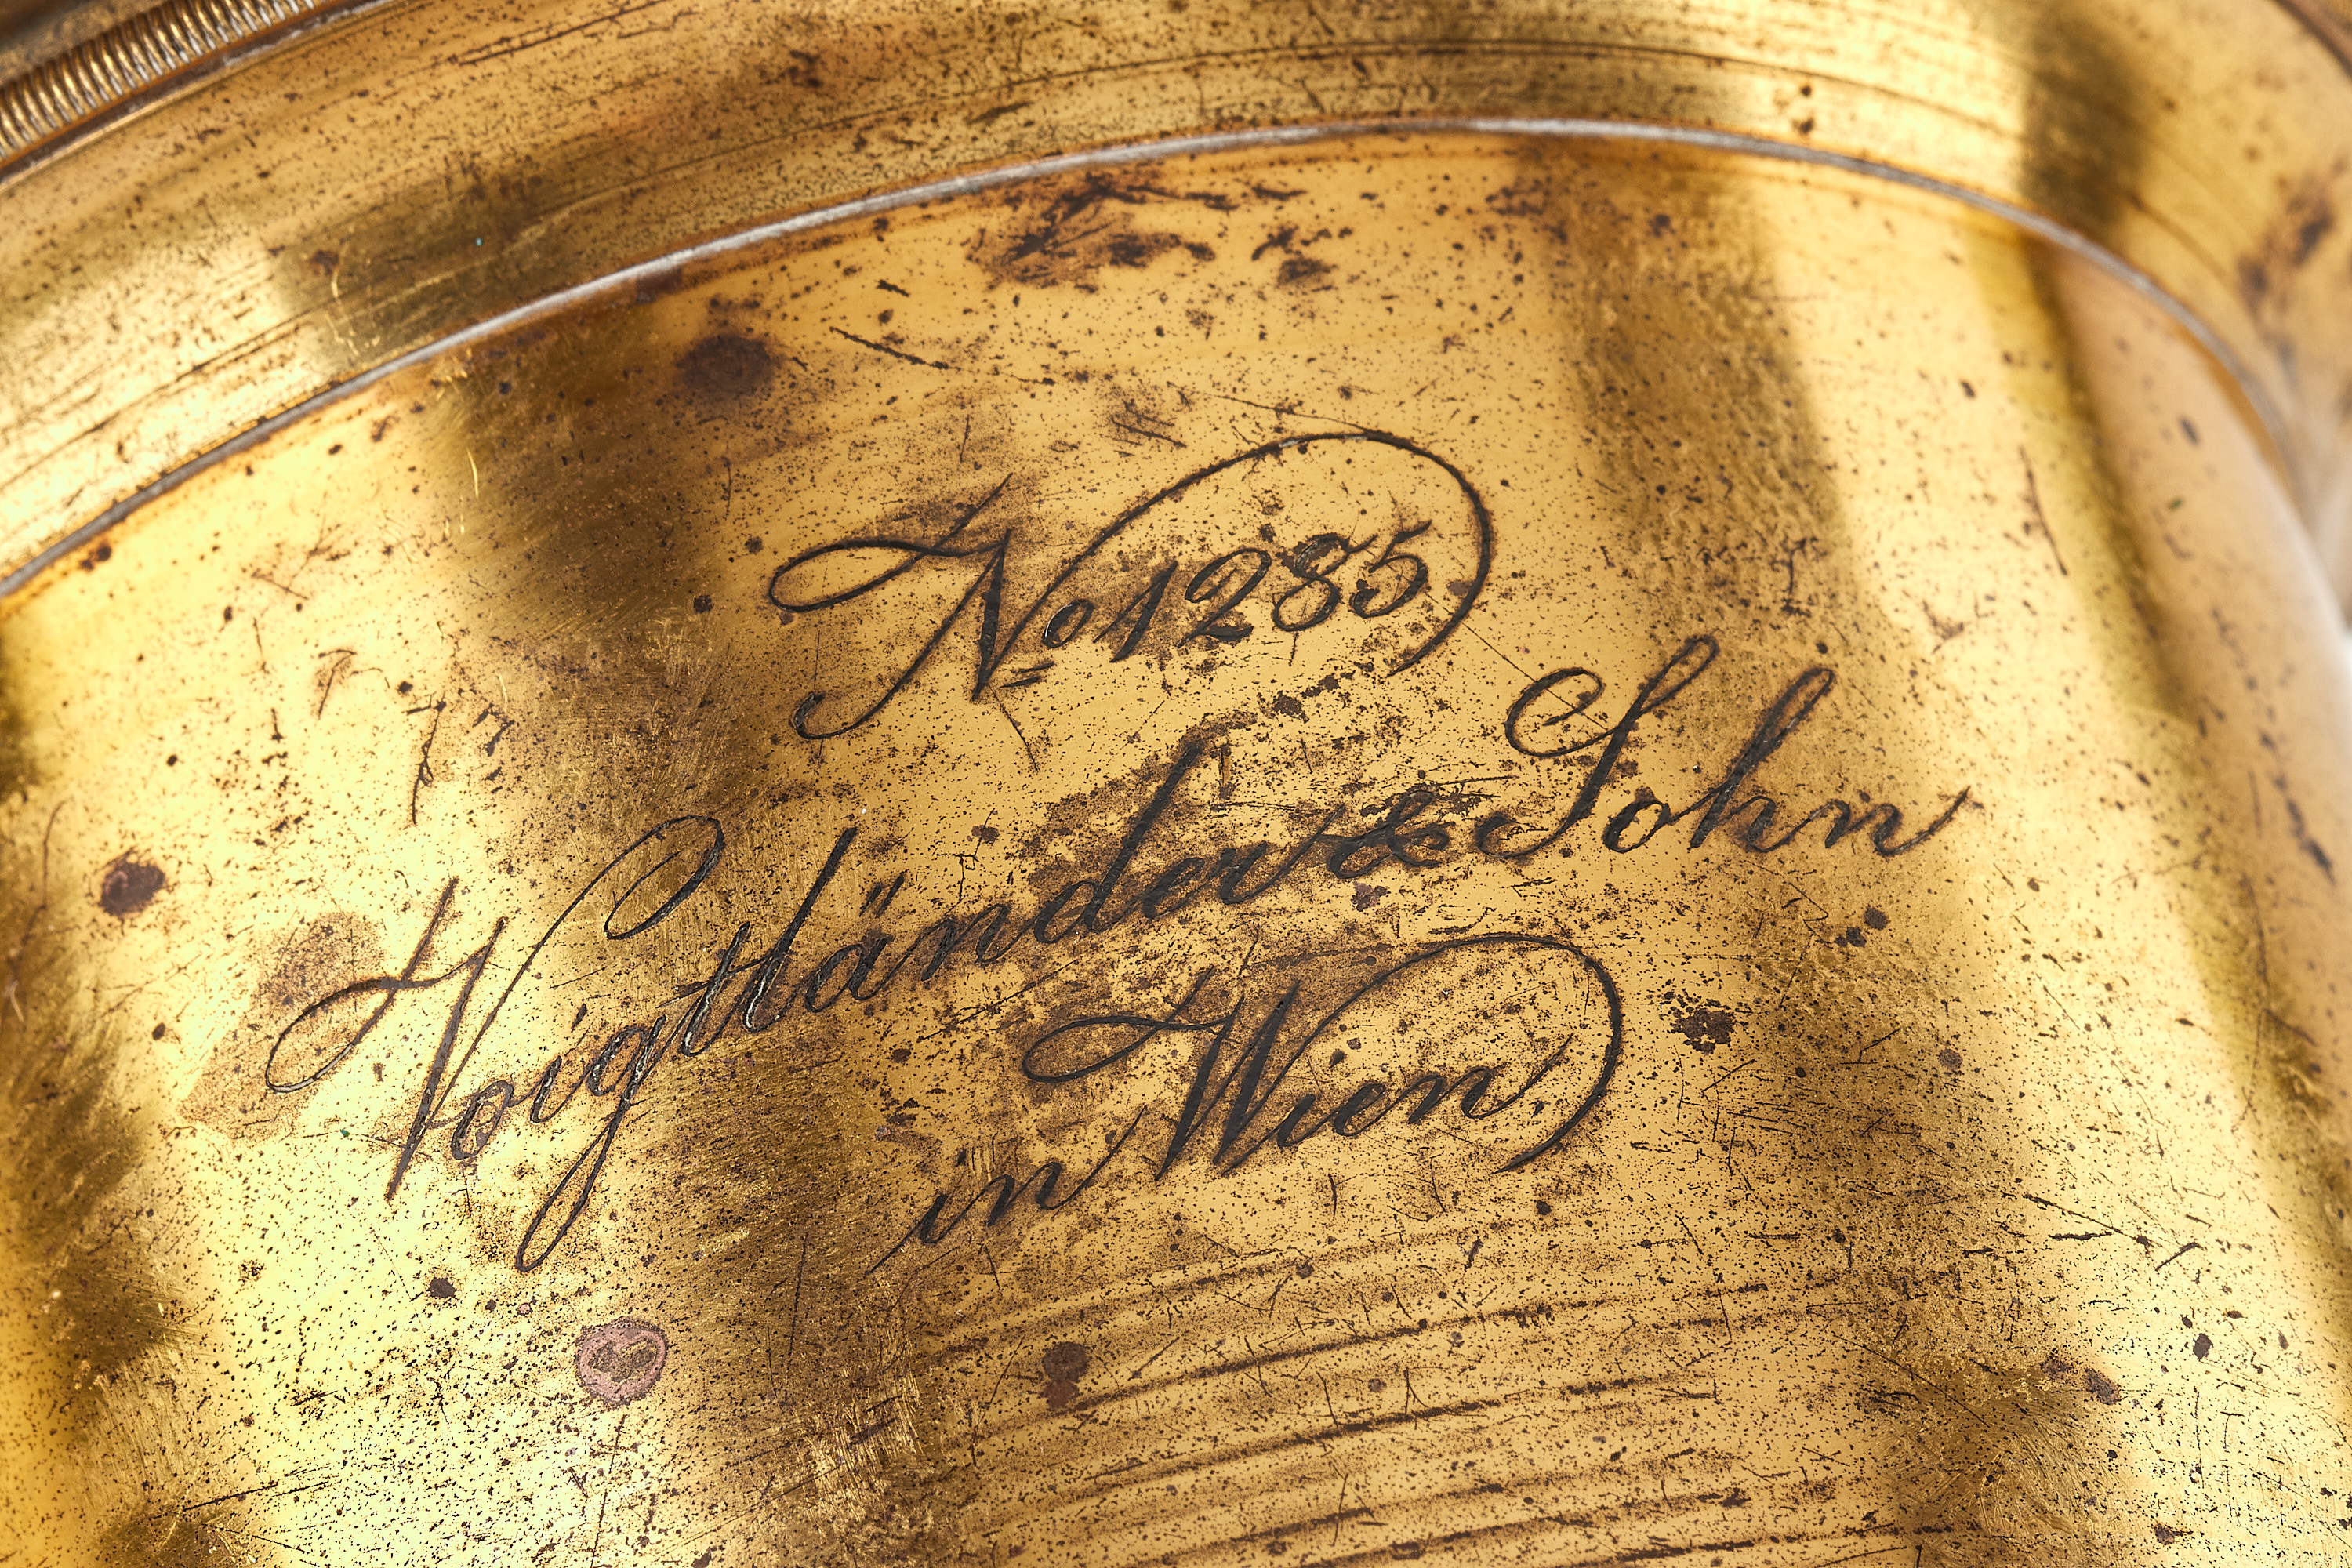 No 1285
Voigtländer & Sohn
in Wien.